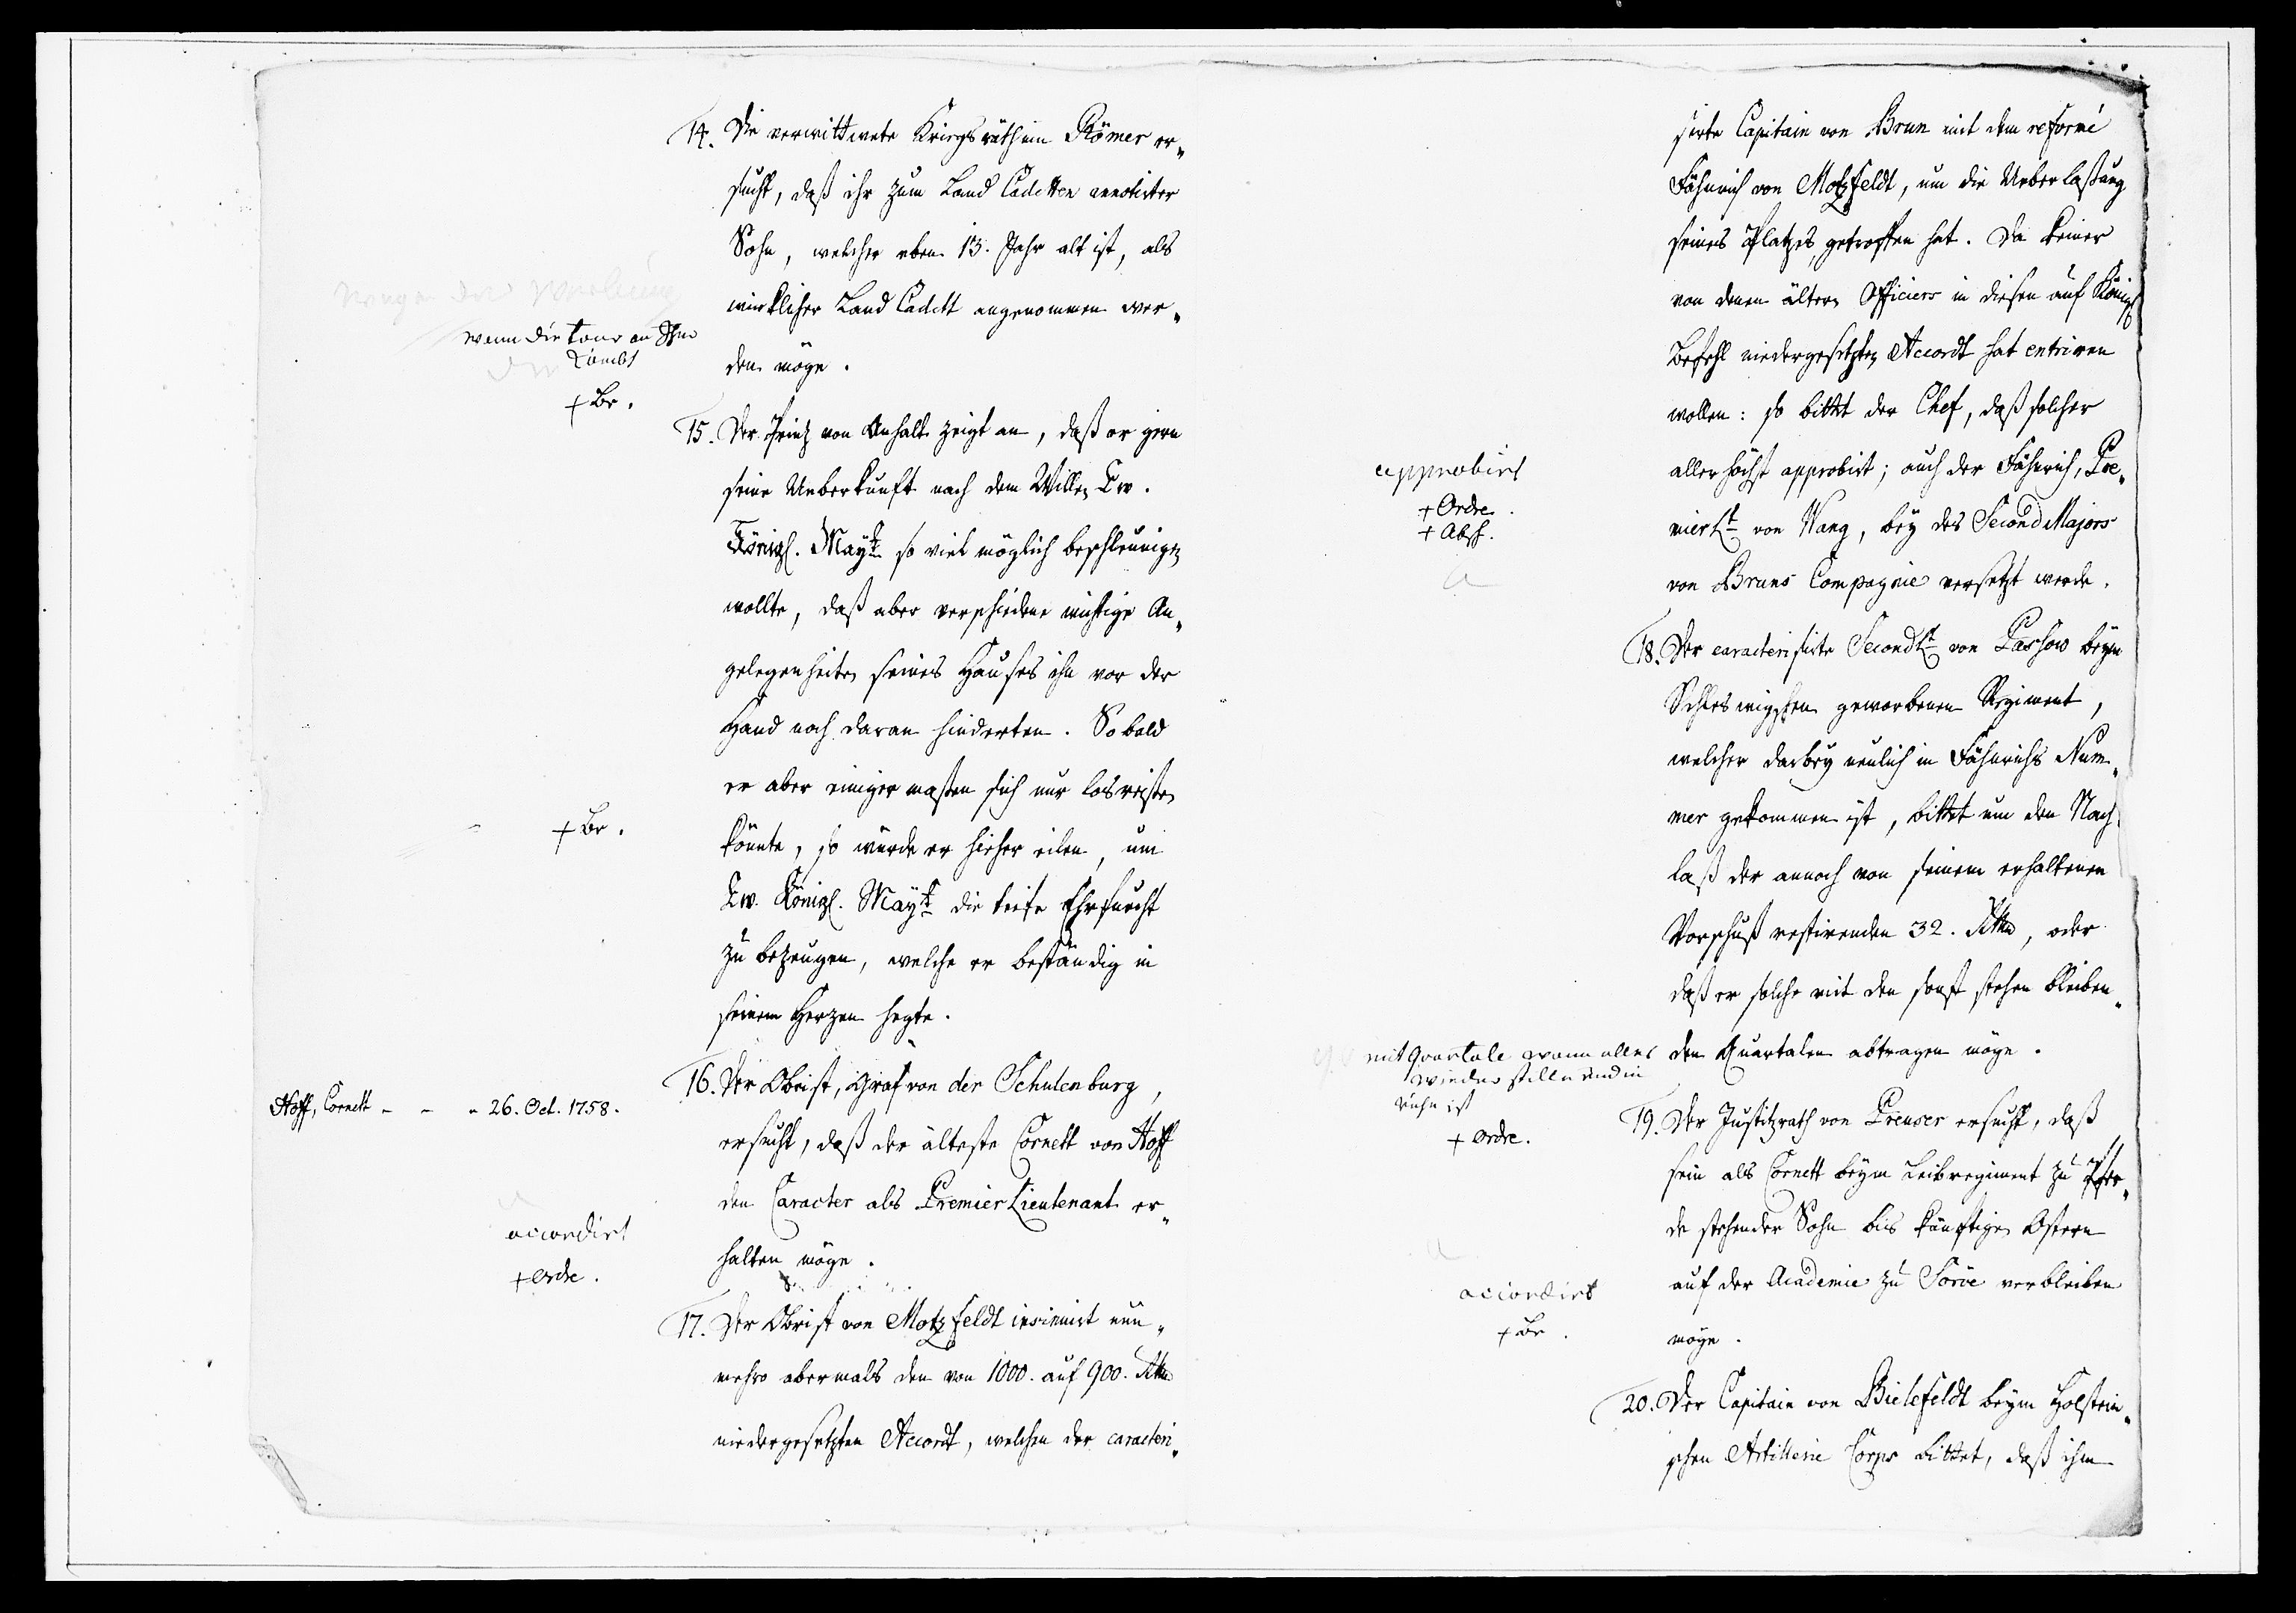 14. Die verwittwete Kriegsräthin Römer er„
sucht, daß ihr zum Land Cadetten annotirter
Sohn, welcher eben 13. Jahr alt ist, als
wirklicher Land Cadett angenommen wer„
den möge.
wenn die tour an Ihm
kömbt
+ Br.
15. Der Prinz von Anhalt zeigt an, daß er gern
seine Ueberkunft nach dem Willen Ew.
Königl. Mayt. so viel möglich beschleunigen
wollte, daß aber verschiedene wichtige An„
gelegenheiten seines Hauses ihn vor der
Hand noch daran hinderten. So bald
er aber einiger maßen sich nur losreißen
könnte, so würde er hieher eilen, um
Ew. Königl. Mayt. die tiefe Ehrfurcht
zu bezeugen, welche er beständig in
seinem Herzen hegte.
+ Br.
16. Der Obrist, Graf von der Schulenburg,
ersucht, daß der älteste Cornett von Hoff
den Caracter als Premier Lieutenant er„
halten möge.
Hoff, Cornett - - - 26. Oct. 1758.
accordirt
+ Ordre.
17. Der Obrist von Motzfeldt insinuirt nun„
mehro abermals den von 1000. auf 900. Rthlr
niedergesetzten Accordt, welchen der caracteri„
sirte Capitain von Brun mit dem reformé
Fähnrich von Motzfeldt, um die Ueberlaßung
seines Platzes, getroffen hat. Da keiner
von denen ältern Officiers in diesen auf Königl
Befehl niedergesetzten Accordt hat entriren
wollen: so bittet der Chef, daß solcher
allerhöchst approbirt; auch der Fähnrich, Pre„
mier Lt von Wang, bey des Second Majors
von Bruns Compagnie versetzt werde.
approbirt
+ Ordre.
+ Absch.
18. Der caracterisirte Second Lt von Passow beym
Schleswigschen geworbenen Regiment,
welcher darbey neulich in Fähnrichs Num„
mer gekommen ist, bittet um den Nach„
laß der annoch von seinem erhaltenen
Vorschuß restirenden 32. Rthlr, oder
daß er solche mit den sonst stehen bleiben„
den Quartalen abtragen möge.
mit quartale wann alles
wieder stille und in
ruhe ist
+ Ordre.
19. Der Justitzrath von Preuser ersucht, daß
sein als Cornett beym Leibregiment zu Pfer„
de stehender Sohn bis künftige Ostern
auf der Academie zu Soröe verbleiben
möge.
accordirt
+ Br.
20. Der Capitain von Bielefeldt beym Holstein„
schen Artillerie Corps bittet, daß ihm